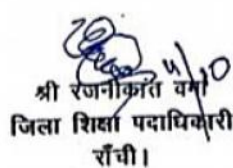 4/10
श्री रजनीकांत वर्मा
जिला शिक्षा पदाधिकारी
राँची।